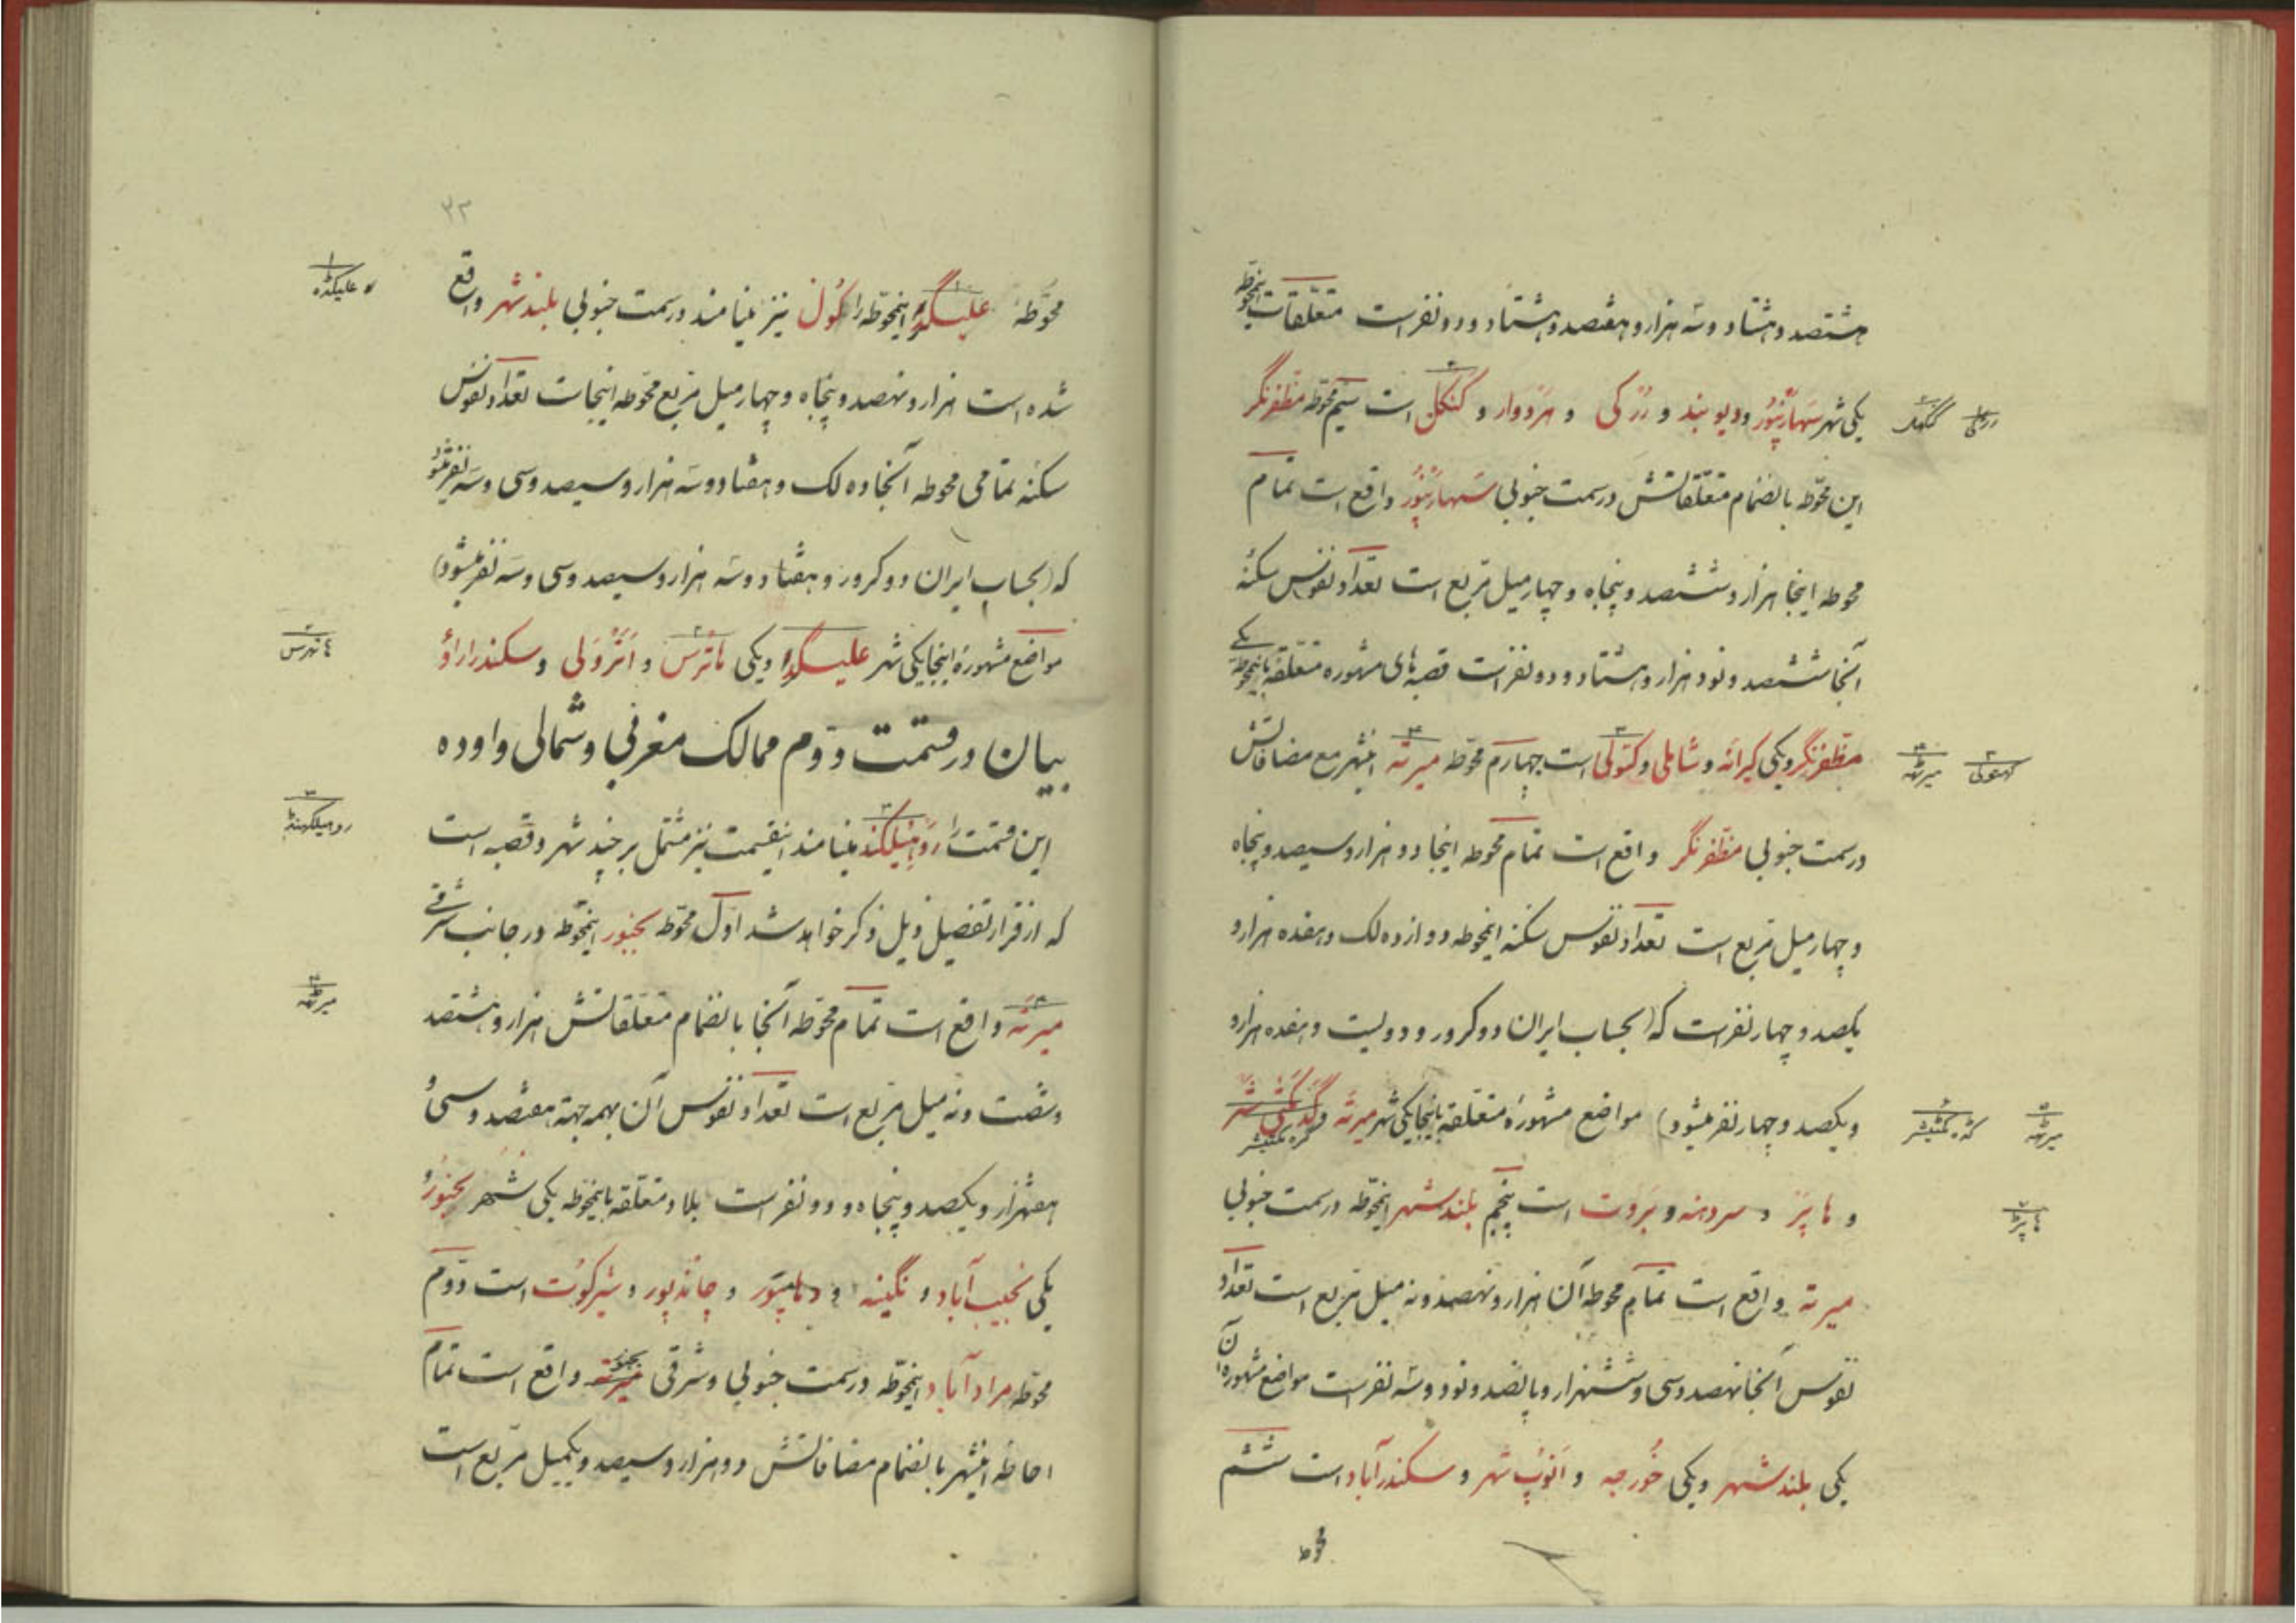 هشتصد و هشتاد و سه هزار و هفتصد و هشتاد و دو نفر است متعلقات اینمحوطه
یکی شهر سهارنپور و دیوبند و رزکی و هردوار و کنکل است سیم محوطه مظفرنگر
این محوطه بانضمام متعلقاتش در سمت جنوبی سهارنپور واقع است تمام
محوطه اینجا هزار و ششصد و پنجاه و چهار میل مربع است تعداد نفوس سکنهٔ
آنجا ششصد و نود هزار و هشتاد و دو نفر است قصبه‌های مشهوره متعلقه باینمحوطه یکی
مظفرنگر و یکی کیرانه و شاملی و کتولی است چهارم محوطه میرته اینشهر مع مضافاتش
در سمت جنوبی مظفرنگر واقع است تمام محوطه اینجا دو هزار و سیصد و پنجاه
و چهار میل مربع است تعداد نفوس سکنه اینمحوطه دوازده لک و هفده هزار و
یکصد و چهار نفر است که (بحساب ایران دو کرور و دویست و هفده هزار و
و یکصد و چهار نفر میشود) مواضع مشهورهٔ متعلقه باینجا یکی شهر میرته و
و هاپز و سردهنه و بروت است پنجم بلندشهر اینمحوطه در سمت جنوبی
میرته واقع است تمام محوطه آن هزار و نهصد و نه میل مربع است تعداد
نفوس آنجا نهصد و سی و ششهزار و پانصد و نود و سه نفر است مواضع مشهوره آن
یکی بلندشهر و یکی خورجه و انوپ شهر و سکندرآباد است ششم
محوطه
رزکی کنکهل
کهتولی میرٹهه
میرٹهه
هاپڑ
۳۲
محوطهٔ علیگده اینمحوطه را کول نیز مینامند در سمت جنوبی بلندشهر واقع
شده است هزار و نهصد و پنجاه و چهار میل مربع محوطه اینجاست تعداد نفوس
سکنه تمامی محوطه آنجا ده لک و هفتاد و سه هزار و سیصد و سی و سه نفر میشود
که (بحساب ایران دو کرور و هفتاد و سه هزار و سیصد و سی و سه نفر میشود)
مواضع مشهورهٔ اینجا یکی شهر علیگده و یکی هاترس و اترولی و سکندراراؤ
بیان در قسمت دوم ممالک مغربی و شمالی و اوده
این قسمت را روهیلکند مینامند اینقسمت نیز مشتمل بر چند شهر و قصبه است
که از قرار تفصیل ذیل ذکر خواهد شد اول محوطه بجنور اینمحوطه در جانب شرقی
میرته واقع است تمام محوطه آنجا بانضمام متعلقاتش هزار و هشتصد
و شصت و نه میل مربع است تعداد نفوس آن بهمه جهة هفتصد و سی و
هفتهزار و یکصد و پنجاه و دو نفر است بلاد متعلقه باینمحوطه یکی شهر بجنور و
یکی نجیب‌آباد و نگینه و دهامپور و چاندپور و شیرکوت است دوم
محوطه مرادآباد اینمحوطه در سمت جنوبی و شرقی بجنور واقع است تمام
احاطه اینشهر بانضمام مضافاتش دو هزار و سیصد و یکمیل مربع است
علیگڈه
هاتهرس
روهیلکهنڈ
میرٹهه